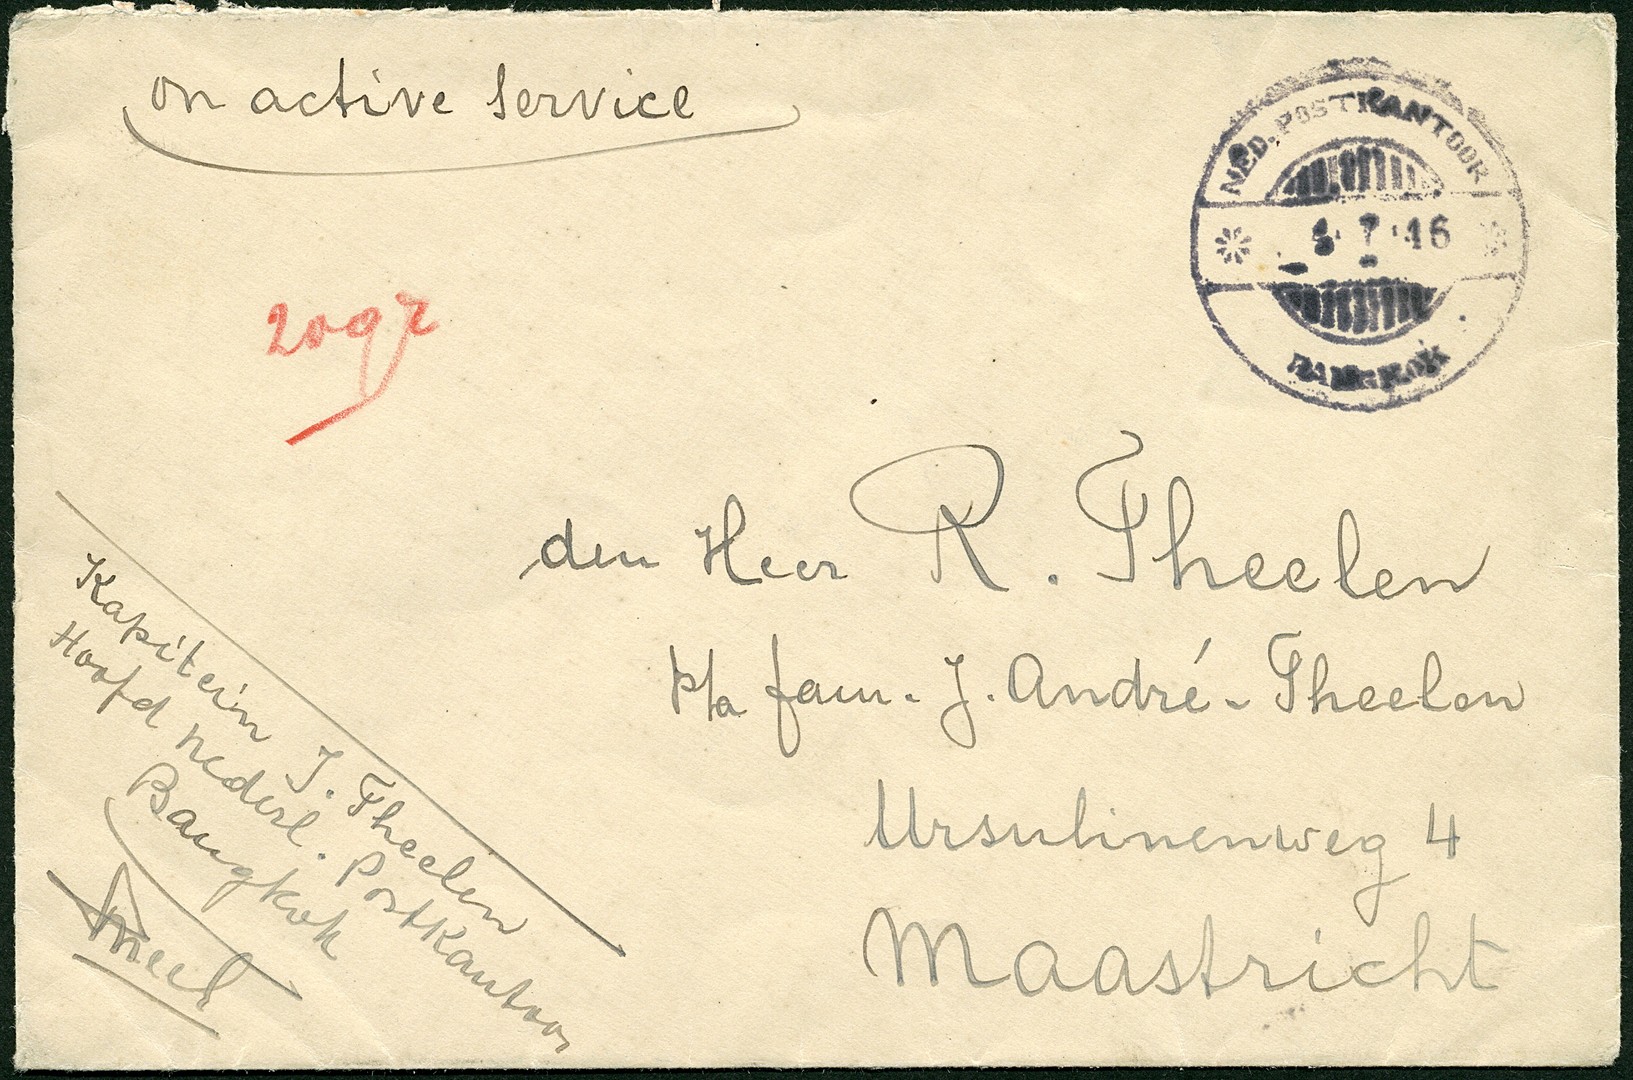 on active service
NED. POSTKANTOOR
7 46
BANGKOK
20gr
den Heer R. Theelen
p/a fam. J. André-Theelen
Ursulinenweg 4
Maastricht
Kapitein J. Theelen
Hoofd nederl. Postkantoor
Bangkok